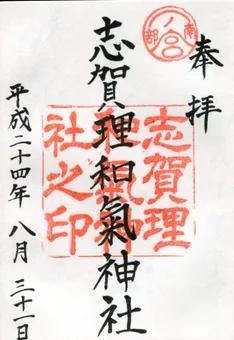 奉拝
南部一ノ宮
志賀理和氣神社
志賀理和氣神社之印
平成二十四年 八月 三十一日